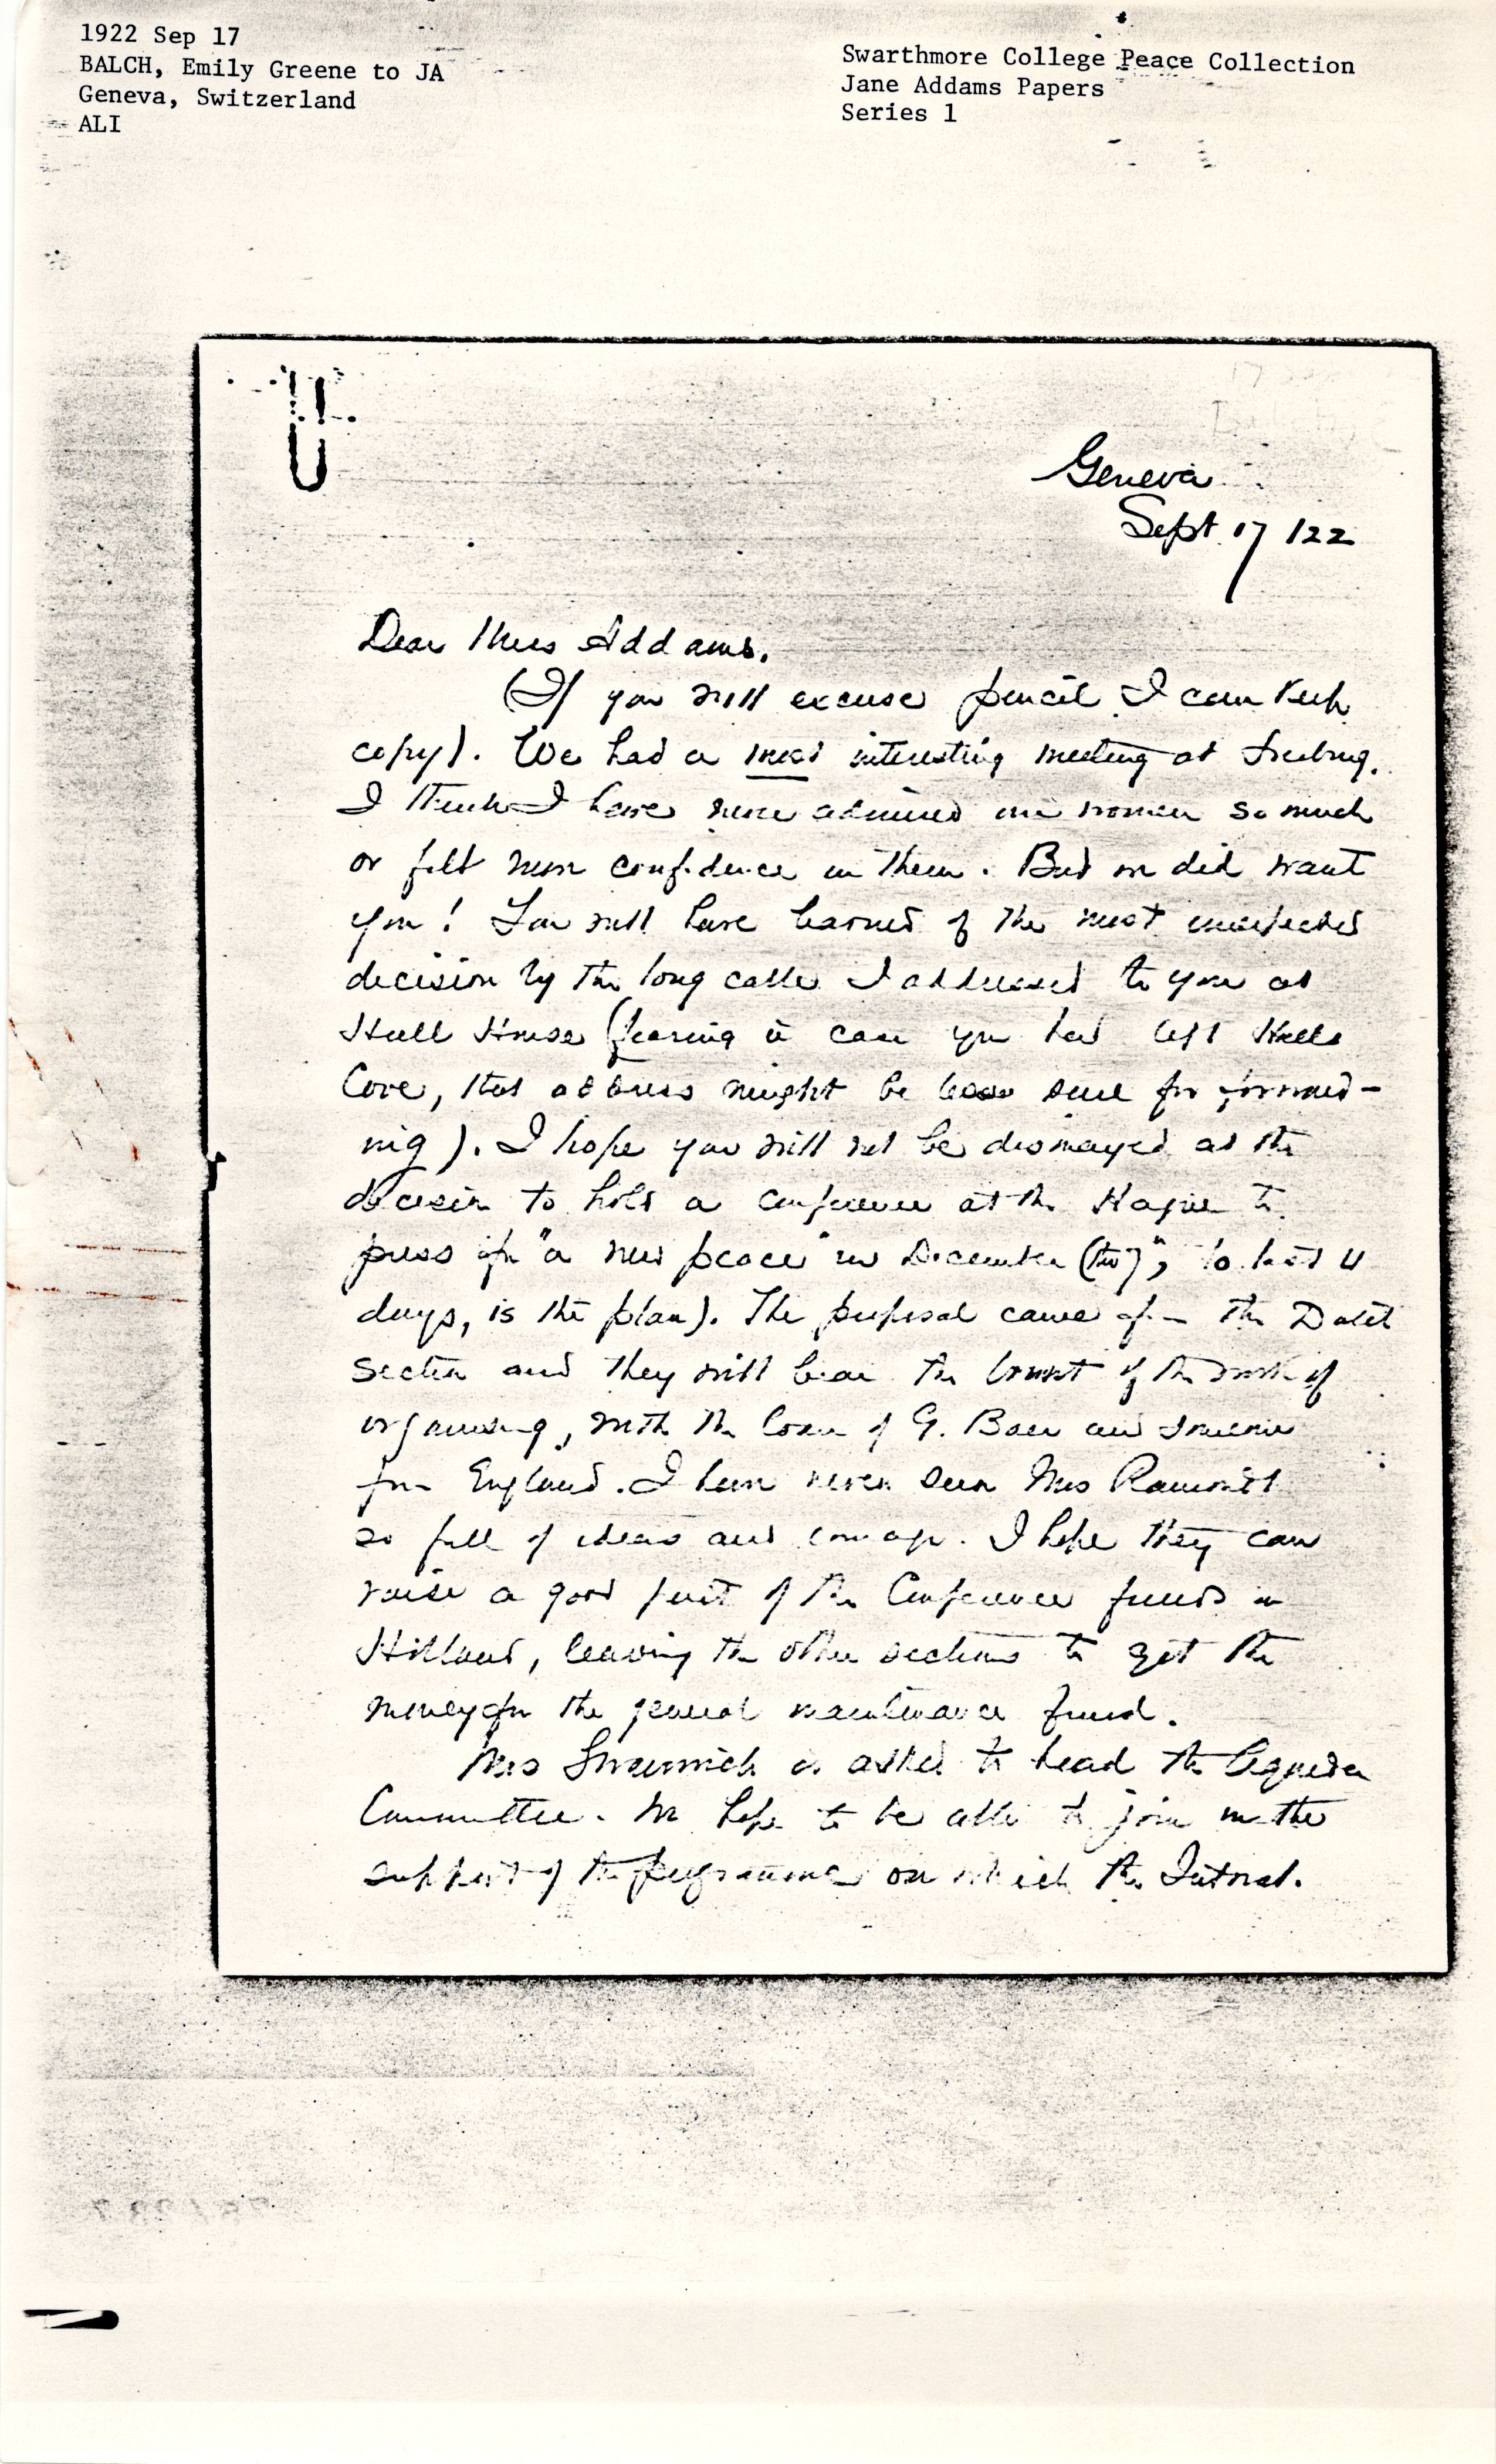 1922 Sep 17
BALCH, Emily Greene to JA
Geneva, Switzerland
ALI
Swarthmore College Peace Collection
Jane Addams Papers
Series 1
Geneva
Sept 17 /22
Dear Miss Addams.
(If you will excuse pencil I can keep
copy). We had a most interesting meeting at Freiburg.
I think I have never admired our women so much
or felt more confidence in them. But we did want
you! You will have learned of the most unexpected
decision by the long cable I addressed to you at
Hull House (fearing in case you had left Hulls
Cove, that address might be less sure for forward-
ing). I hope you will not be dismayed at the
decision to hold a conference at the Hague to
press for "a new peace" in December ( to last 4
days, is the plan). The proposal came from the Dutch
section and they will bear the brunt of the work of
organising, with the loan of G. Baer and someone
from England. I have never seen Mrs Ramondt
so full of ideas and courage. I hope they can
raise a good part of the Conference funds in
Holland, leaving the other sections to get the
money for the general maintenance fund.
Mrs Swanwick is asked to head the Agenda
Committee. We hope to be able to join in the
support of the programme on which the Internat.